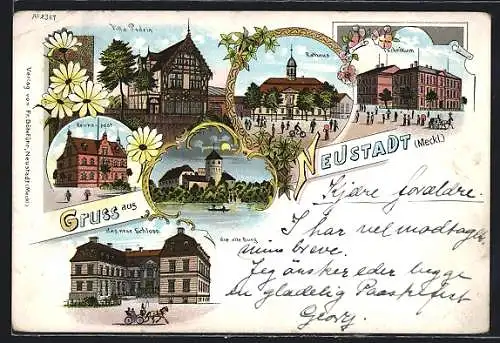 No 2367
Villa Pederin
Rathaus
Technikum
Kaiserl. Post
NEUSTADT (Meckl.)
Gruss aus
das neue Schloss
die alte Burg
Verlag von Fr. Neustadt (Meckl.)
Kjære forældre.
I har vel modtaget
mine breve.
Jeg ønsker eder begge
en glædelig Paaskefest
Georg.